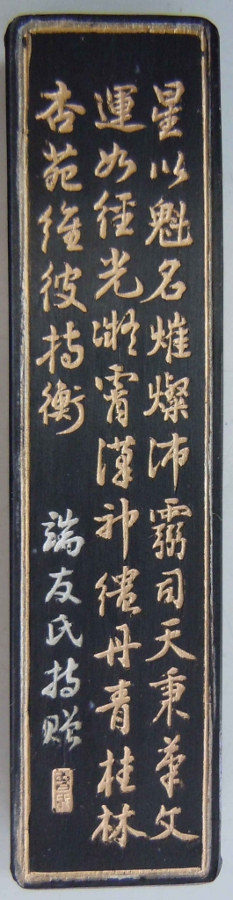 星以魁名熣燦沛司天秉筆文
運如經光凝霄漢神丹青桂林
杏苑維彼持衡
端友氏持贈